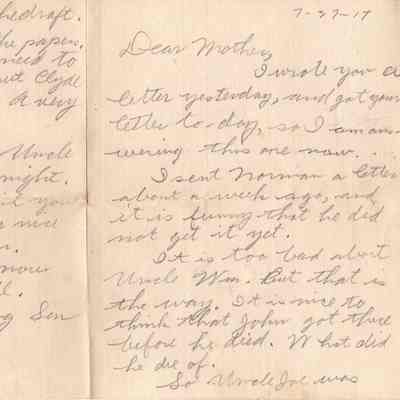 hedraft.
the papers.
need to
Clyde
a very
Uncle
night.
it you
nice
now
Son
7-27-17
Dear Mother,
I wrote you a
letter yesterday, and got your
letter to-day, so I am ans-
wering this one now.
I sent Norman a letter
about a week ago, and
it is funny that he did
not get it yet.
It is too bad about
Uncle Wm. But that is
the way. It is nice to
think that John got there
before he died. What did
he die of.
So Uncle Joe was